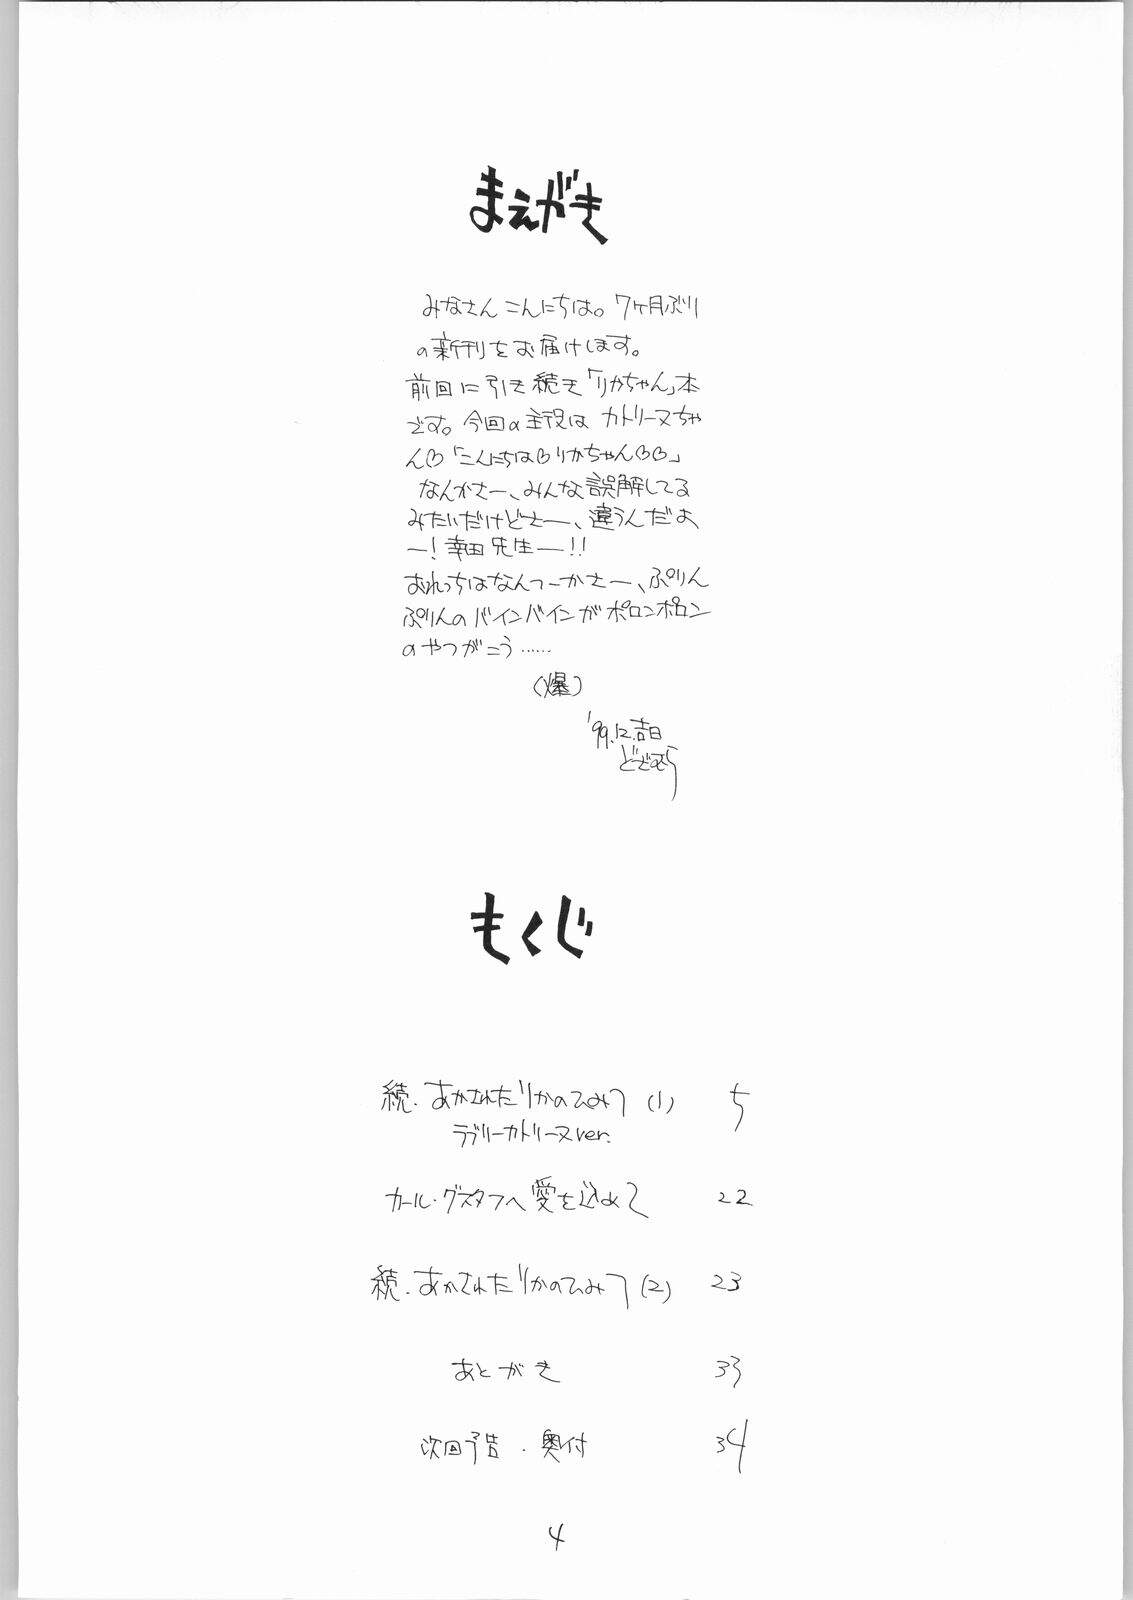 まえがき
みなさんこんにちは。7ヶ月ぶり
の新刊をお届けします。
前回に引き続き「りかちゃん」本
です。今回の主役はカトリーヌちゃ
ん♡「こんにちは♡りかちゃん♡♡」
なんかさー、みんな誤解してる
みたいだけどさー、違うんだよ
ー!幸田先生ー!!
おれっちはなんつーかさー、ぷりん
ぷりんのバインバインがポロンポロン
のやつがこう……
(爆)
'99.12.吉日
もくじ
続・あかされたりかのひみつ(1) 5
ラブリーカトリーヌver.
カール・グスタフへ愛を込めて 22
続・あかされたりかのひみつ(2) 23
あとがき 33
次回予告・奥付 34
4